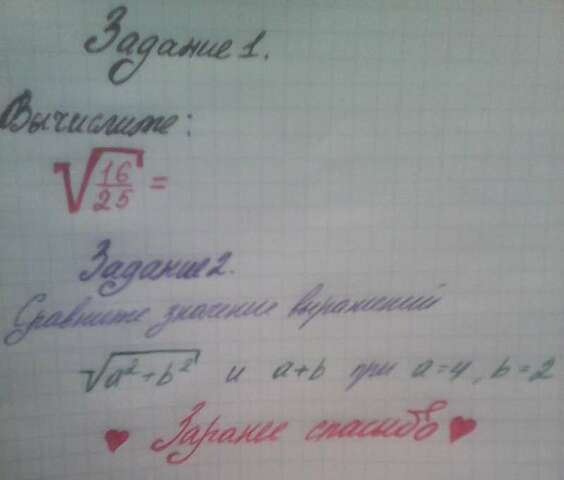 Задание 1.
Вычислите:
√(16/25) =
Задание 2.
Сравните значение выражений
√(a²+b²) и a+b при a=4, b=2
♥ Заранее спасибо ♥